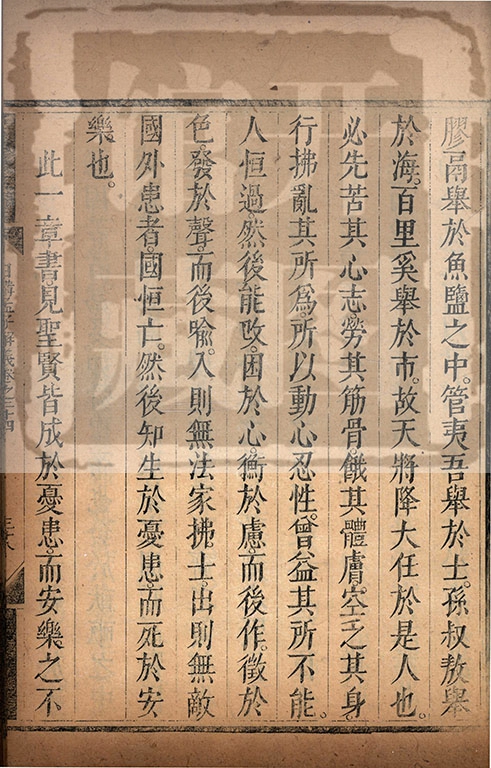 膠鬲舉於魚鹽之中。管夷吾舉於士。孫叔敖舉
於海。百里奚舉於市。故天將降大任於是人也。
必先苦其心志。勞其筋骨。餓其體膚。空乏其身。
行拂亂其所為。所以動心忍性。曾益其所不能。
人恒過。然後能改。困於心。衡於慮。而後作。徵於
色。發於聲。而後喻。入則無法家拂士。出則無敵
國外患者。國恒亡。然後知生於憂患。而死於安
樂也。
此一章書。見聖賢皆成於憂患。而安樂之不